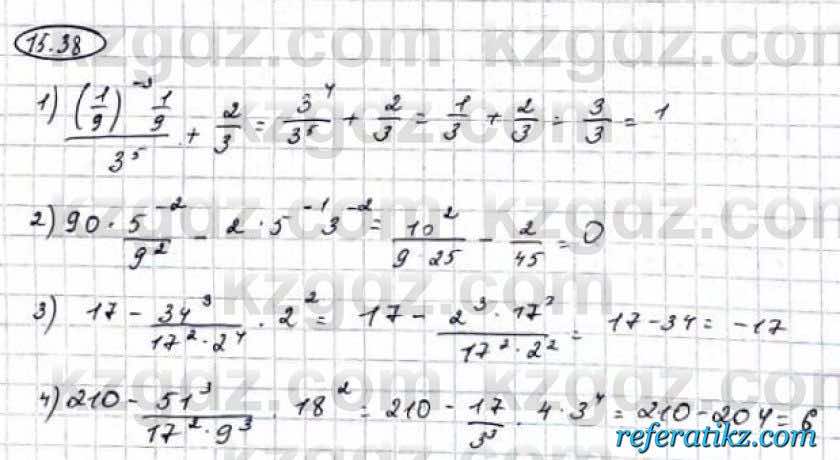 15.38
1) ((1/9)^-3 · 1/9)/3^5 + 2/3 = 3^4/3^5 + 2/3 = 1/3 + 2/3 = 3/3 = 1
2) 90 · 5^-2/9^2 - 2 · 5^-1 3^-2 = 10^2/(9 · 25) - 2/45 = 0
3) 17 - 34^3/(17^2 · 2^4) · 2^2 = 17 - (2^3 · 17^3)/(17^2 · 2^2) = 17 - 34 = -17
4) 210 - 51^3/(17^2 · 9^3) · 18^2 = 210 - 17/3^3 · 4 · 3^4 = 210 - 204 = 6
kzgdz.com
referatikz.com